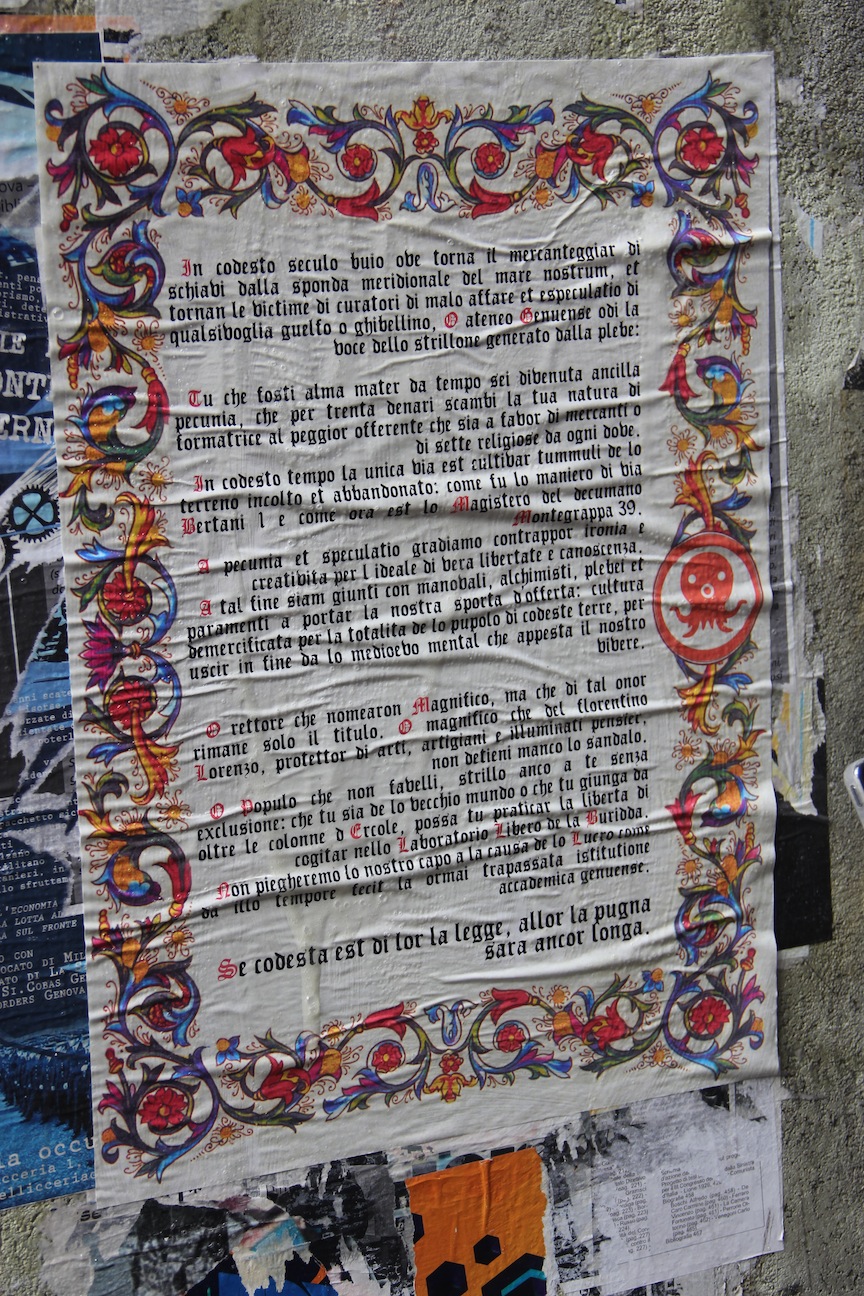 In codesto seculo buio ove torna il mercanteggiar di
schiavi dalla sponda meridionale del mare nostrum, et
tornan le victime di curatori di malo affare et especulatio di
qualsivoglia guelfo o ghibellino, O ateneo Genuense odi la
voce dello strillone generato dalla plebe:
Tu che fosti alma mater da tempo sei divenuta ancilla
pecunia, che per trenta denari scambi la tua natura di
formatrice al peggior offerente che sia a favor di mercanti o
di sette religiose da ogni dove.
In codesto tempo la unica via est cultivar tummuli de lo
terreno incolto et abbandonato: come fu lo maniero di via
Bertani 1 e come ora est lo Magistero del decumano
Montegrappa 39.
A pecunia et speculatio gradiamo contrappor ironia e
creativita per l ideale di vera libertate e canoscenza.
A tal fine siam giunti con manovali, alchimisti, plebei et
paramenti a portar la nostra sporta d'offerta: cultura
demercificata per la totalita de lo pupolo di codeste terre, per
uscir in fine da lo medioevo mental che appesta il nostro
vivere.
O rettore che nomearon Magnifico, ma che di tal onor
rimane solo il titulo. O magnifico che del florentino
Lorenzo, protettor di arti, artigiani e illuminati pensier,
non detieni manco lo sandalo.
O Populo che non favelli, strillo anco a te senza
exclusione: che tu sia de lo vecchio mundo o che tu giunga da
oltre le colonne d Ercole, possa tu praticar la liberta di
cogitar nello Laboratorio Libero de la Buridda.
Non piegheremo lo nostro capo a la causa de lo Lucro come
da illo tempore fecit la ormai trapassata istitutione
accademica genuense.
Se codesta est di lor la legge, allor la pugna
sara ancor longa.
ONT
ERN
L'ECONOMIA
LA LOTTA AL
SUL FRONTE
CON
OCATO DI MIL
ATO DI LA
SI.COBAS GE
ORDERS GENOVA
la occu